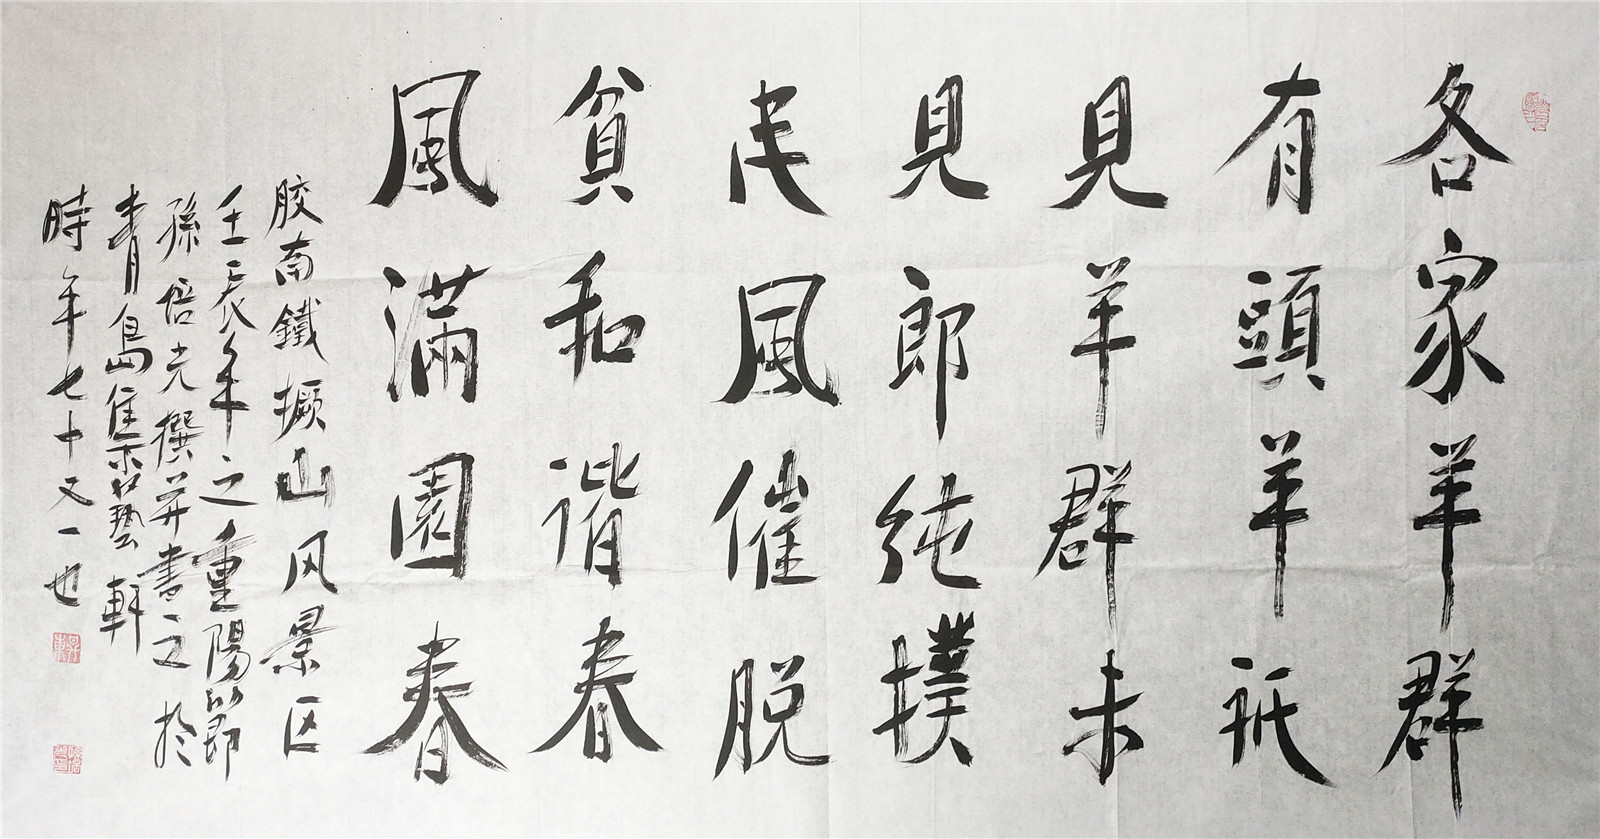 各家羊群
有頭羊祇
見羊群未
見郎純撲
民風催脱
貧和谐春
風滿園春
胶南鐵撅山风景区
壬辰年之重陽節
孫培光撰并書之於
青島藝軒
時年七十又一也